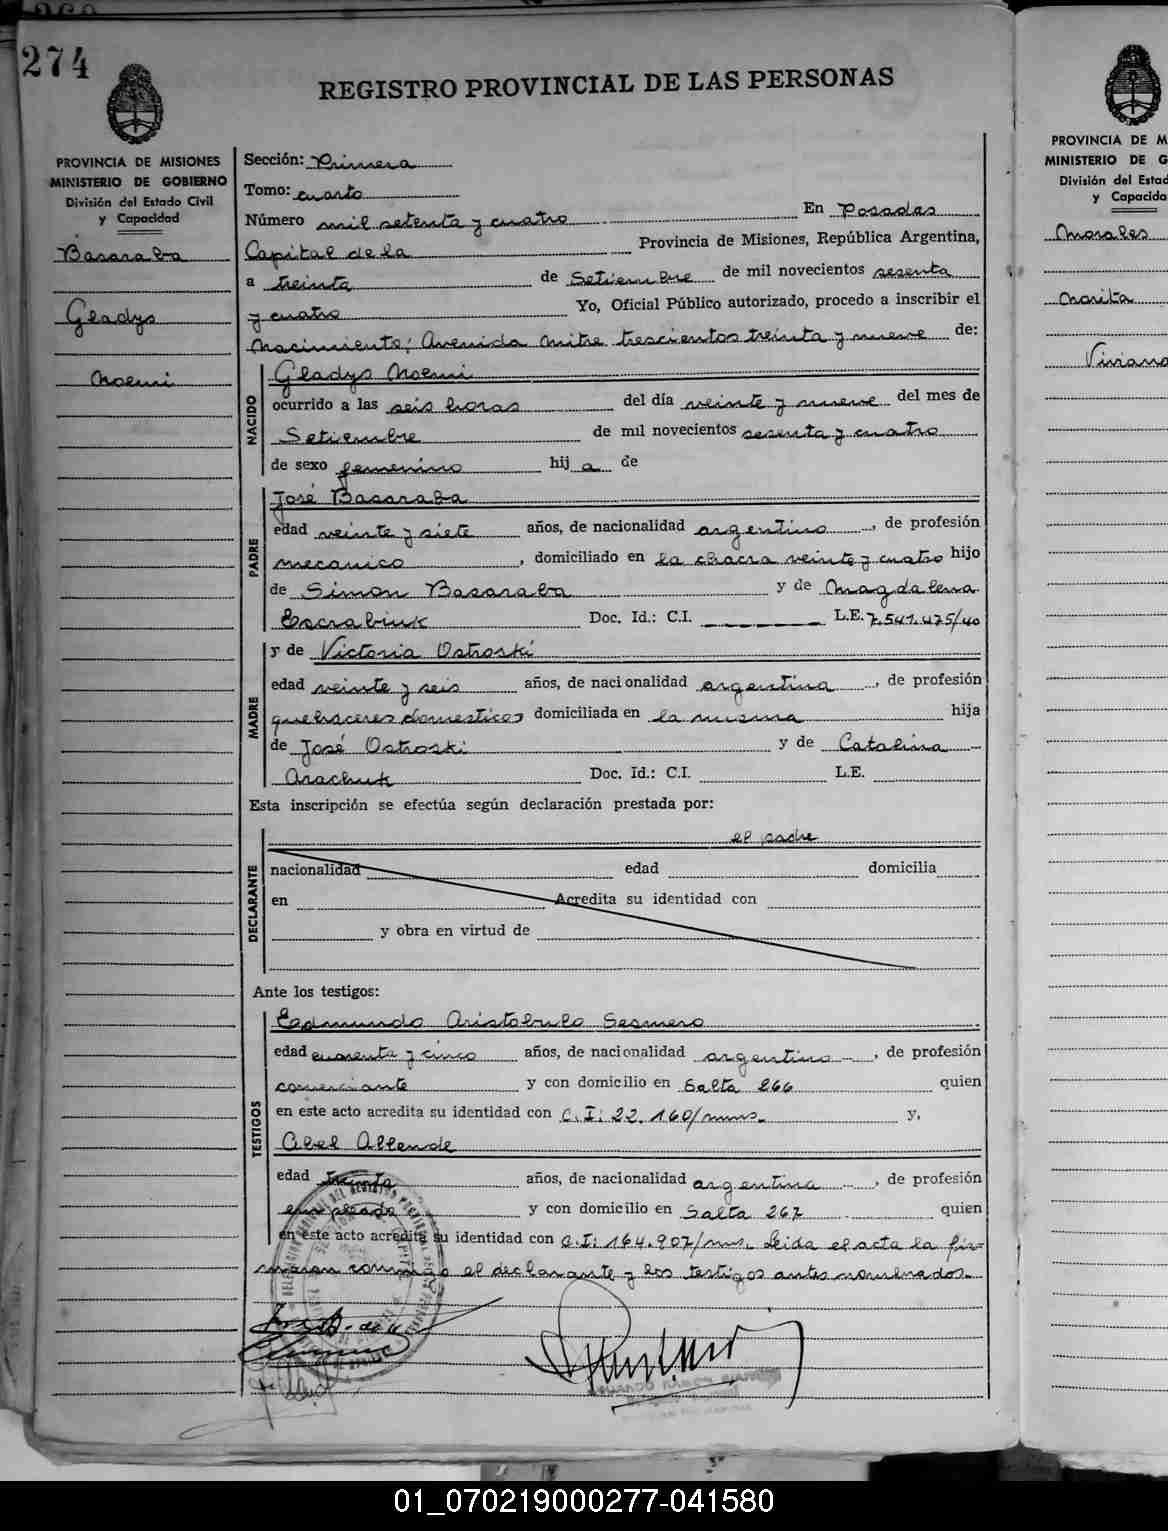 274
REGISTRO PROVINCIAL DE LAS PERSONAS
PROVINCIA DE MISIONES
MINISTERIO DE GOBIERNO
División del Estado Civil
y Capacidad
Basaraba
Gladys
Noemi
Sección: Primera
Tomo: cuarto
Número mil setenta y cuatro En Posadas
Capital de la Provincia de Misiones, República Argentina,
a treinta de Setiembre de mil novecientos sesenta
y cuatro Yo, Oficial Público autorizado, procedo a inscribir el
nacimiento; Avenida Mitre trescientos treinta y nueve de:
NACIDO
Gladys Noemi
ocurrido a las seis horas del día veinte y nueve del mes de
Setiembre de mil novecientos sesenta y cuatro
de sexo femenino hij a de
PADRE
José Basaraba
edad veinte y siete años, de nacionalidad argentino, de profesión
mecanico, domiciliado en la chacra veinte y cuatro hijo
de Simon Basaraba y de Magdalena
Escrabiuk Doc. Id.: C.I. L.E. 7.541.475/40
MADRE
y de Victoria Ostroski
edad veinte y seis años, de nacionalidad argentina, de profesión
quehaceres domesticos domiciliada en la misma hija
de José Ostroski y de Catalina
Arachuk Doc. Id.: C.I. L.E.
Esta inscripción se efectúa según declaración prestada por:
DECLARANTE
el padre
nacionalidad edad domicilia
en Acredita su identidad con
y obra en virtud de
Ante los testigos:
TESTIGOS
Edmundo Aristobulo Sesmero
edad cuarenta y cinco años, de nacionalidad argentino, de profesión
comerciante y con domicilio en Salta 266 quien
en este acto acredita su identidad con C.I: 22.160/mnes. y,
Abel Allende
edad treinta años, de nacionalidad argentina, de profesión
empleado y con domicilio en Salta 267 quien
en este acto acredita su identidad con C.I: 164.907/mns. Leida el acta la fir-
maran conmigo el declarante y los testigos antes nombrados.
PROVINCIA DE M
MINISTERIO DE G
División del Estad
y Capacida
Morales
Marita
Viviana
01_070219000277-041580